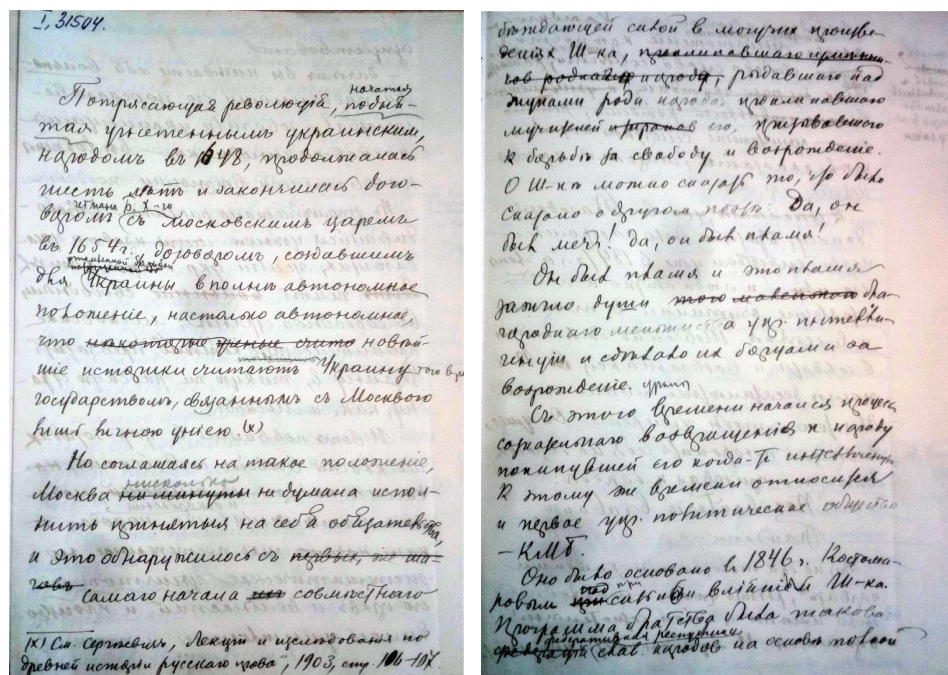 I, 31504.
начатая
Потрясающая революція, подня-
тая угнетеннымъ украинским
народомъ въ 1648 продолжалась
шесть лѣтъ и закончилась дого-
гетмана Б. Х-го
воромъ съ Московскимъ царемъ
въ 1654 г. договоромъ, создавшимъ
для Украины вполнѣ автономное
положеніе, настолько автономное,
что некоторые ученые счита новѣй-
шіе историки считаютъ Украину того вр
государствомъ, связаннымъ съ Москвою
лишь личною уніею. (х)
Но соглашаясь на такое положеніе,
нисколько
Москва ни минуты не думала испол-
нить принятыя на себя обязательства,
и это обнаружилось съ первых же ша-
говъ
Самаго начала совмѣстнаго
(х) См. Сергѣевичъ, Лекціи и изслѣдованія по
древней исторіи русскаго права", 1903, стр. 106-107.
бѣждающей силой в могучих произве-
деніях Ш-ка, рыдавшаго над
муками родн. народа, проклинавшаго
мучителей и тиранов его, призывавшаго
к борьбѣ за свободу и возрожденіе.
О Ш-кѣ можно сказать то, что было
сказано о другом поэтѣ: Да, он
был меч! да, он был пламя!
Он был пламя и это пламя
зажгло души того бла-
городнаго меньшинства укр. интелли-
генціи и сдѣлало их борцами за
возрожденіе.
Украины
Съ этого времени начался процесъ
сознательнаго возвращенія к народу
покинувшей его когда-то интеллигенціи
К этому же времени относится
и первое укр. политическое общество
– КМБ.
Оно было основано в 1846 г. Костома-
ровым под сильным вліяніем Ш-ка.
при
Программа братства была такова:
федеративная республика
федерація слав. народов на основѣ полной